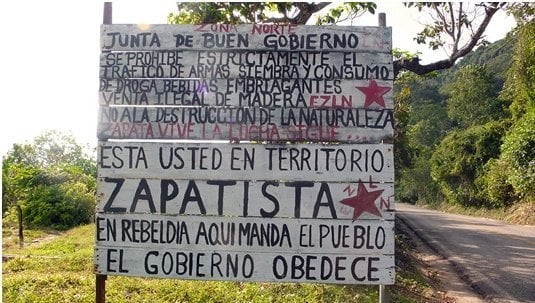 ZONA NORTE
JUNTA DE BUEN GOBIERNO
SE PROHIBE ESTRICTAMENTE EL
TRAFICO DE ARMAS SIEMBRA Y CONSUMO
DE DROGA BEBIDAS EMBRIAGANTES
VENTA ILEGAL DE MADERA EZLN
NO A LA DESTRUCCION DE LA NATURALEZA
ZAPATA VIVE LA LUCHA SIGUE...
ESTA USTED EN TERRITORIO
ZAPATISTA EZLN
EN REBELDIA AQUI MANDA EL PUEBLO
EL GOBIERNO OBEDECE